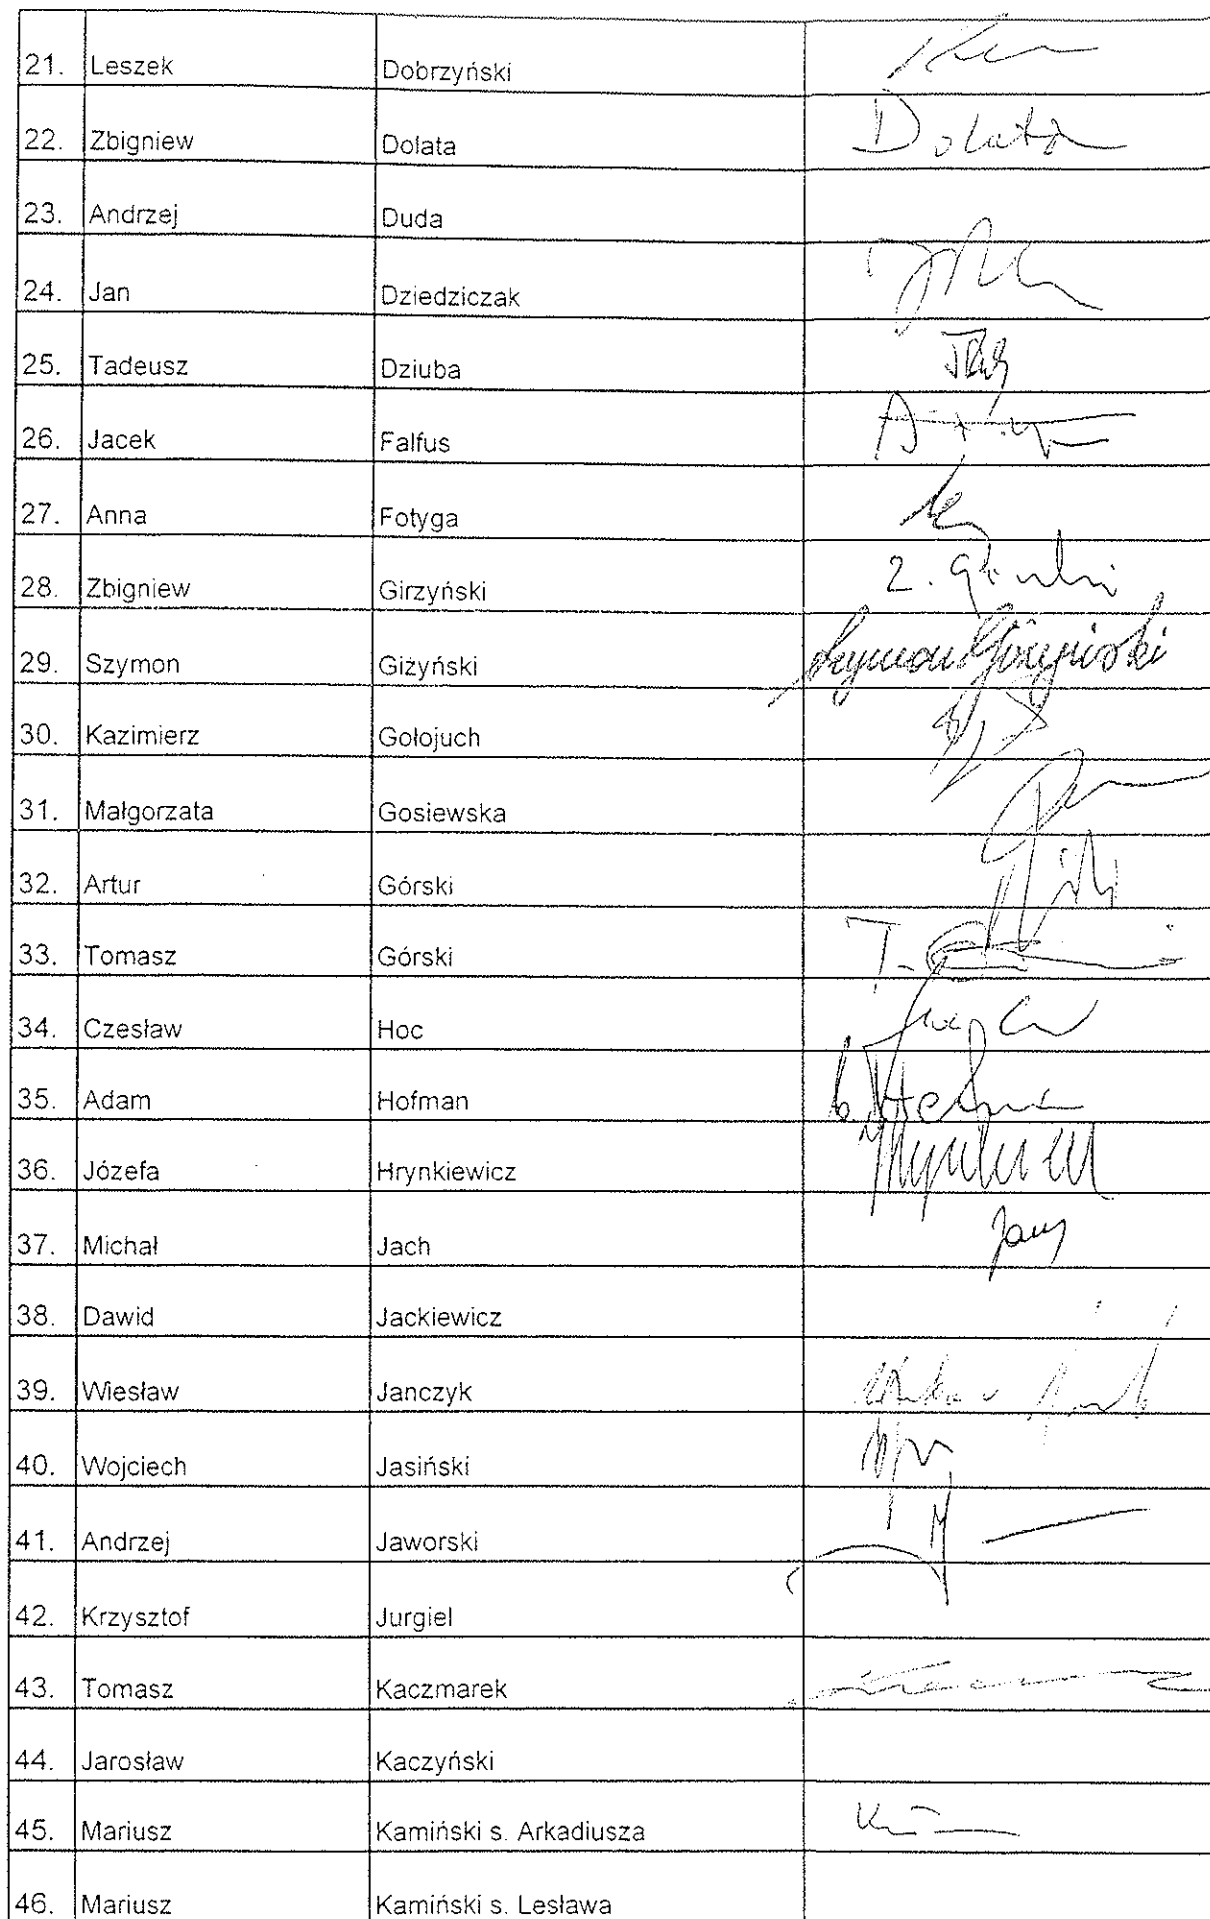 21. Leszek Dobrzyński
22. Zbigniew Dolata Dolata
23. Andrzej Duda
24. Jan Dziedziczak
25. Tadeusz Dziuba
26. Jacek Falfus
27. Anna Fotyga
28. Zbigniew Girzyński
29. Szymon Giżyński Szymon Giżyński
30. Kazimierz Gołojuch
31. Małgorzata Gosiewska
32. Artur Górski
33. Tomasz Górski
34. Czesław Hoc
35. Adam Hofman
36. Józefa Hrynkiewicz
37. Michał Jach
38. Dawid Jackiewicz
39. Wiesław Janczyk
40. Wojciech Jasiński
41. Andrzej Jaworski
42. Krzysztof Jurgiel
43. Tomasz Kaczmarek
44. Jarosław Kaczyński
45. Mariusz Kamiński s. Arkadiusza
46. Mariusz Kamiński s. Lesława